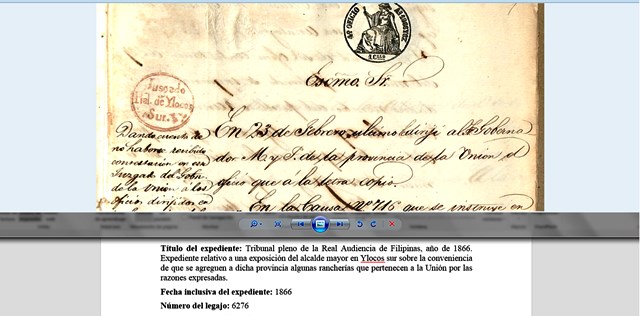 Escmo. Sr.
Juzgado
de Ylocos
Sur.
Dando cuenta de
no haberse recibido
contestacion en
Juzgado del Gobn.
de la Union á los
oficios dirijidos en
En 23 de Febrero dirijí al Sr Goberna
dor M. y P. de la provincia de la Union el
oficio que á la letra copio.
En la Causa Nº 716 que se instruye en
Título del expediente: Tribunal pleno de la Real Audiencia de Filipinas, año de 1866.
Expediente relativo a una exposición del alcalde mayor en Ylocos sur sobre la conveniencia
de que se agreguen a dicha provincia algunas rancherías que pertenecen a la Unión por las
razones expresadas.
Fecha inclusiva del expediente: 1866
Número del legajo: 6276